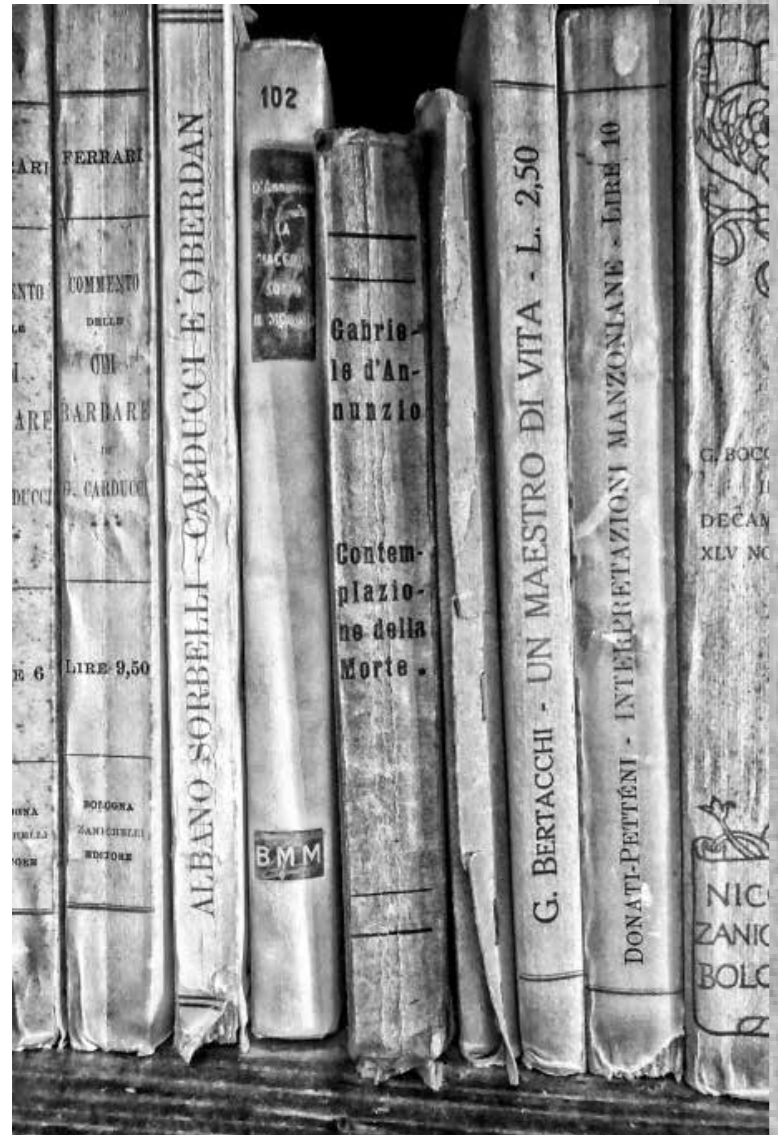 ARI
NTO
I
ARE
DUCCI
E 6
FERRARI
COMMENTO
DELLE
ODI
BARBARE
DI
G. CARDUCCI
LIRE 9,50
BOLOGNA
ZANICHELLI
EDITORE
ALBANO SORBELLI - CARDUCCI E OBERDAN
102
LA
BMM
Gabrie-
le d'An-
nunzio
Contem-
plazio-
ne della
Morte.
G. BERTACCHI - UN MAESTRO DI VITA - L. 2,50
DONATI-PETTÉNI - INTERPRETAZIONI MANZONIANE - LIRE 10
G. BOCC
DECAM
XLV NO
NIC
ZANIC
BOLO